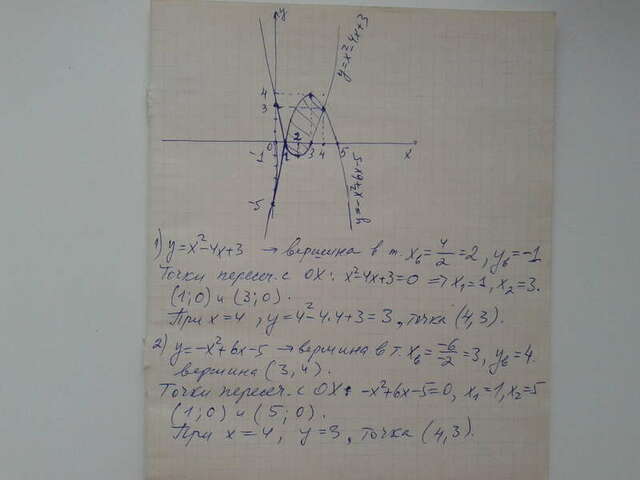 y
y=x²-4x+3
4
3
-1 0 1 2 3 4 5 x
-5
y=-x²+6x-5
1) y=x²-4x+3 → вершина в т. x_в=4/2=2, y_в=-1
Точки пересеч. с OX: x²-4x+3=0 ⇒ x₁=1, x₂=3.
(1;0) и (3;0).
При x=4, y=4²-4·4+3=3, точка (4,3).
2) y=-x²+6x-5 → вершина в т. x_в=-6/-2=3, y_в=4.
вершина (3,4).
Точки пересеч. с OX: -x²+6x-5=0, x₁=1, x₂=5
(1;0) и (5;0).
При x=4, y=3, точка (4,3).